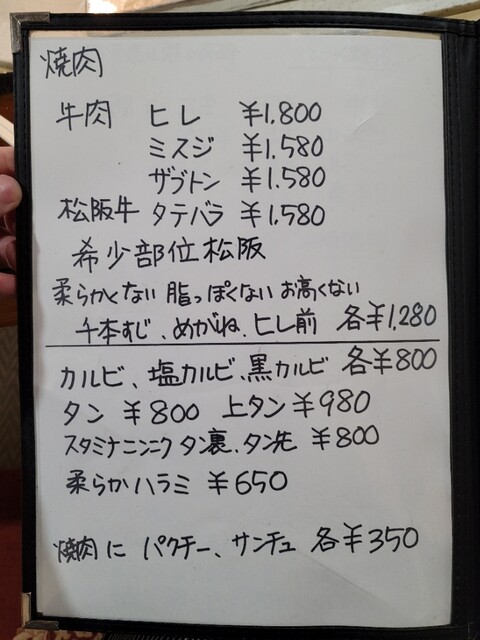 焼肉
牛肉 ヒレ ¥1.800
ミスジ ¥1.580
ザブトン ¥1.580
松阪牛 タテバラ ¥1.580
希少部位松阪
柔らかくない 脂っぽくない お高くない
千本すじ、めがね、ヒレ前 各¥1,280
カルビ、塩カルビ、黒カルビ 各¥800
タン ¥800 上タン¥980
スタミナニンニク タン裏、タン先 ¥800
柔らかハラミ ¥650
焼肉に パクチー、サンチュ 各¥350